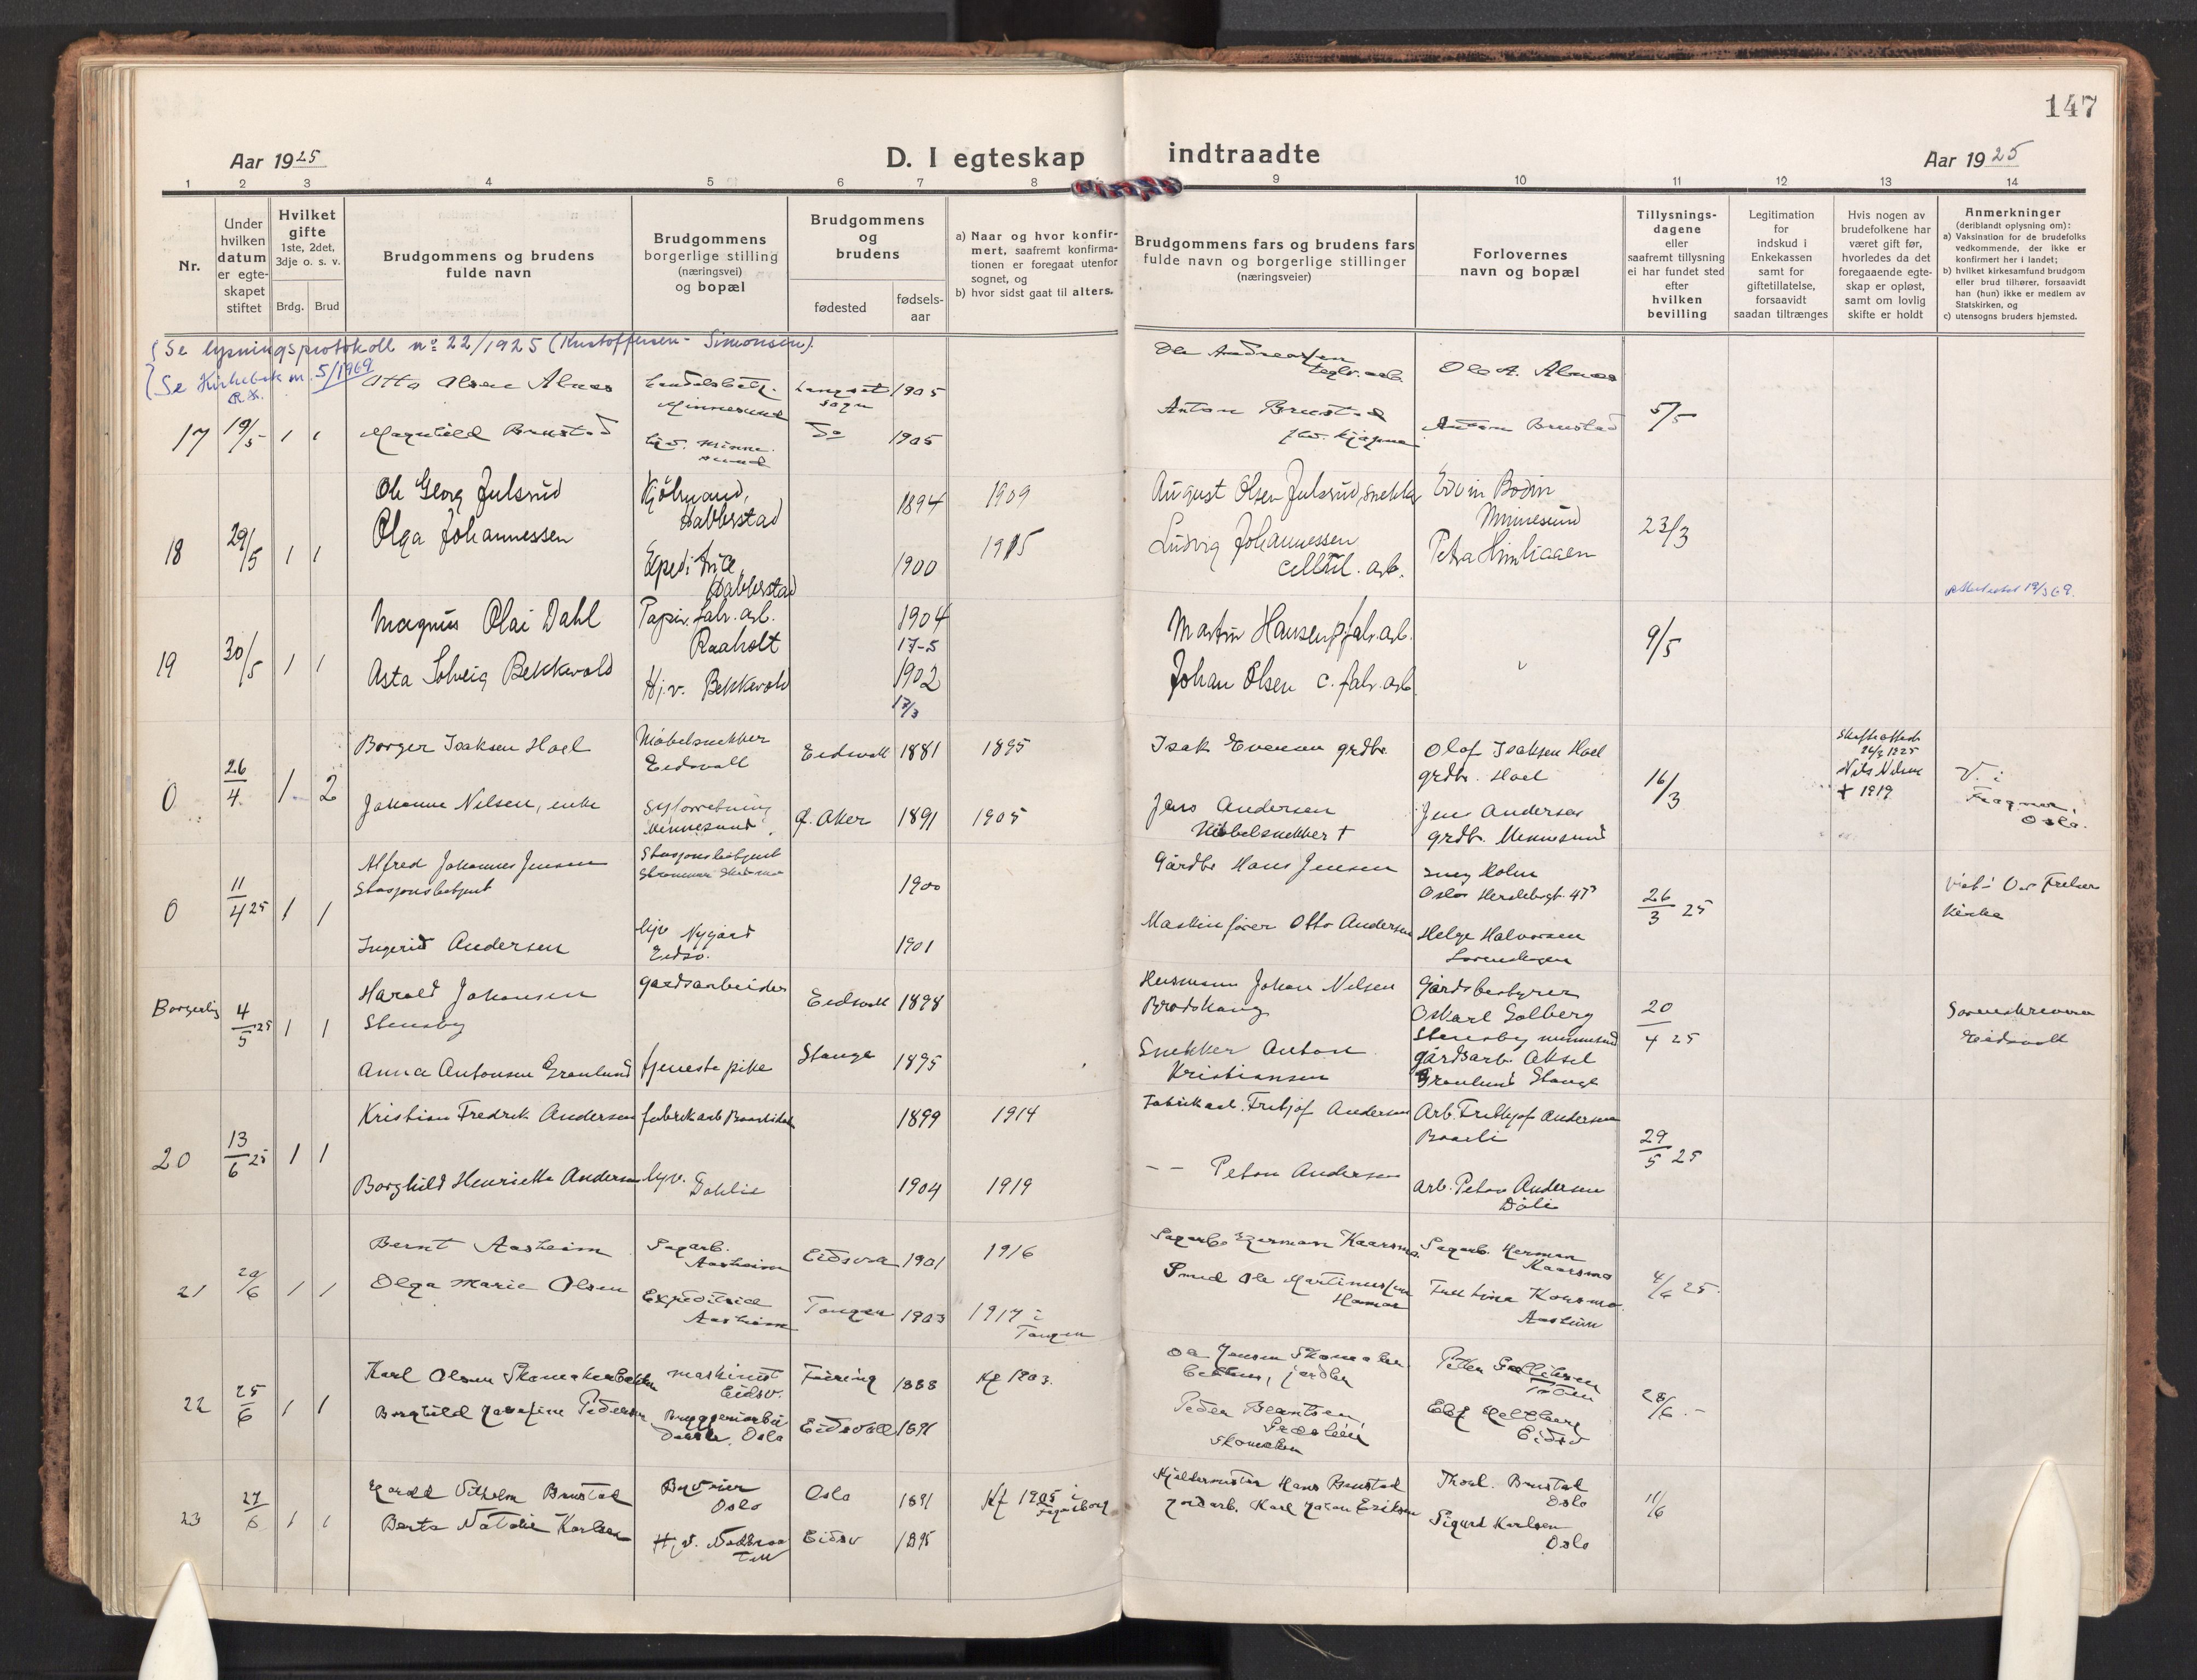 147
Aar 1925
D. I egteskap indtraadte
Aar 1925
1 2 3 4 5 6 7 8 9 10 11 12 13 14
Nr.
Under hvilken datum er egte-skapet stiftet
Hvilket gifte
1ste, 2det, 3dje o. s. v.
Brdg. Brud
Brudgommens og brudens fulde navn
Brudgommens borgerlige stilling (næringsvei) og bopæl
Brudgommens og brudens
fødested
fødsels-aar
a) Naar og hvor konfir-mert, saafremt konfirma-tionen er foregaat utenfor sognet, og
b) hvor sidst gaat til alters.
Brudgommens fars og brudens fars fulde navn og borgerlige stillinger (næringsveier)
Forlovernes navn og bopæl
Tillysnings-dagene eller saafremt tillysning ei har fundet sted efter hvilken bevilling
Legitimation for indskud i Enkekassen samt for giftetillatelse, forsaavidt saadan tiltrænges
Hvis nogen av brudefolkene har været gift før, hvorledes da det foregaaende egte-skap er opløst, samt om lovlig skifte er holdt
Anmerkninger (deriblandt oplysning om):
a) Vaksination for de brudefolks vedkommende, der ikke er konfirmert her i landet;
b) hvilket kirkesamfund brudgom eller brud tilhører, forsaavidt han (hun) ikke er medlem av Statskirken, og
c) utensogns bruders hjemsted.
Se lysningsprotokoll nº 22/1925 (Kristoffersen - Simonsen).
Se Kirkebok nr. 5/1969
Otto Olsen Alnæs Langset sogn 1905
Ole Andreassen teglv. arb. Ole A. Alnæs
Minnesund
17 19/5 1 1 Magnhild Brustad Do 1905
Anton Brustad Anton Brustad 5/5
Ole Georg Julsrud Kjøbmand, Habberstad 1894 1909
August Olsen Julsrud, snekker Edvin Bodin Minnesund
18 29/5 1 1 Olga Johannessen Expeditrice, Habberstad 1900 1915
Ludvig Johannessen cellul. arb. Petra 23/3
Magnus Olai Dahl Papir. fabr. arb. Raaholt 1904 17-5
Martin Hansen p. fabr. arb. 9/5
19 30/5 1 1 Asta Solveig Bekkevold Hj. v. Bekkevold 1902 17/3
Johan Olsen c. fabr. arb. "
Borger Isaksen Hoel Møbelsnekker Eidsvoll Eidsvoll 1881 1895
Isak Evensen grdbr. Olaf Isaksen Hoel grdbr. Hoel
26/3 1925 Nils Nilsen + 1919
0 26/4 1 2 16/3
V. i Frogner, Oslo.
Johanne Nilsen, enke Syforretning Minnesund Ø. Aker 1891 1905
Jens Andersen Møbelsnekker + Jens Andersen grdbr. Minnesund
Alfred Johannes Jensen Stasjonsbetjent Stasjonsbetjent Strømmen 1900
Gårdbr Hans Jensen Holm Oslo
0 11/4 25 1 1 26/3 25
Viet i Vor Frelser Kirke
Ingerid Andersen hjv Nygård Eidsv. 1901
Maskinfører Otto Andersen Helge Halvorsen Lørenskogen
Borgerlig 4/5 25 1 1 Harald Johansen Stensby gardsarbeider Eidsvoll 1898
Husmann Johan Nilsen Brodshaug Gårdsbestyrer Oskarl Solberg Stensby Minnesund 20/4 25
Sorenskriveren Eidsvoll
Anna Antonsen Grønlund tjenestepike Stange 1895
Snekker Anton Kristiansen gårdsarb. Aksel Grønlund Stange
Kristian Fredrik Andersen fabrikarb 1899 1914
Fabrikarb. Fritjof Andersen Arb. Frithjof Andersen
20 13/6 25 1 1 29/5 25
Borghild Henriette Andersen hjv. Dahlie 1904 1919
-- Peton Andersen Arb. Peton Andersen Dåli
Bernt Aasheim Sagarb. Aasheim Eidsvoll 1901 1916
Sagarb. Herman Kaarsmo. Sagarb. Herman Kaarsmo
21 20/6 1 1 4/6 25.
Olga Marie Olsen Expeditrice Aasheim Tangen 1903 1917 i Tangen
Smed Ole Martinussen Hamar Aasheim
Karl Olsen Skomakerbakken maskinist Eidsv. Feiring 1888 Kf 1903.
Ole Jensen Skomakerbakken, jordbr.
22 25/6 1 1 28/6.-
Borghild Josefine Pedersen Bryggeriarbeiderske, Oslo Eidsvoll 1891
Peder Berntsen, Skomaker Eidsv
Harald Vilhelm Brustad Oslo Oslo 1891 Kf 1905 i Fagerborg
Kjeldermester Hans Brustad Thorl. Brustad Oslo
23 27/6 1 1 11/6
Berta Natalie Karlsen Hj. v. Eidsv 1895
Jordarb. Karl Johan Eriksen Sigurd Karlsen Oslo